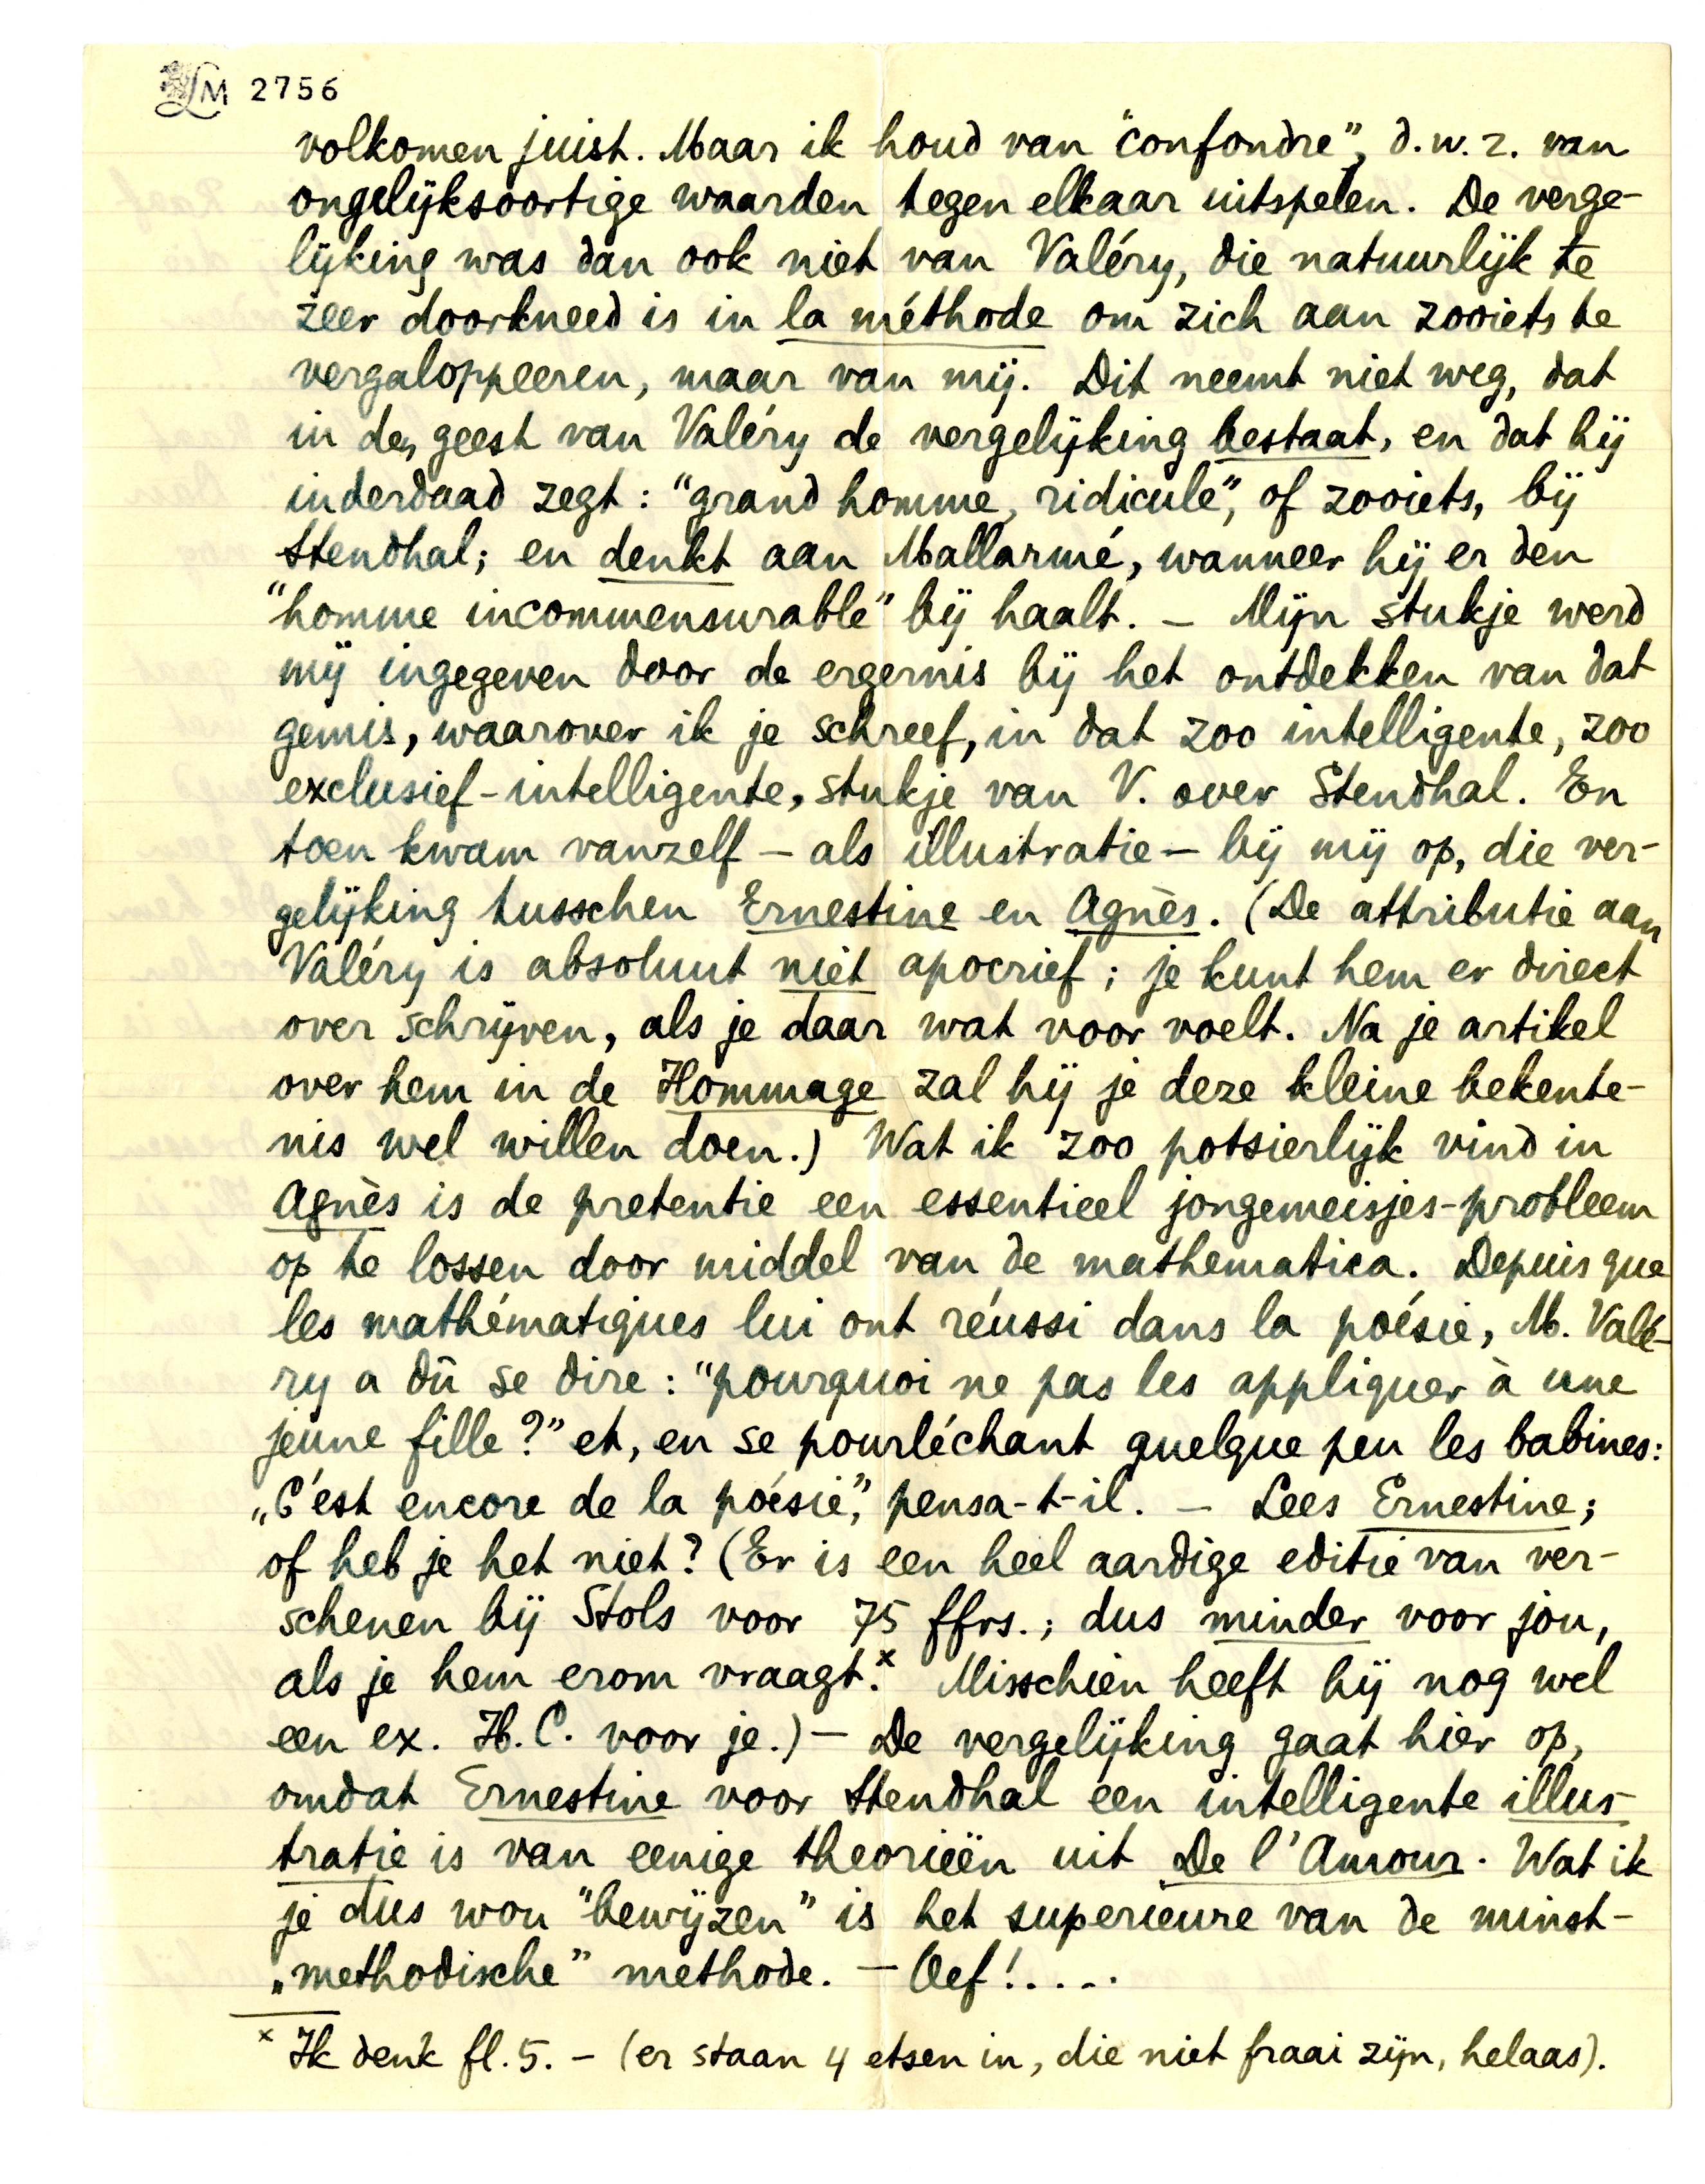 LM 2756
volkomen juist. Maar ik houd van "confondre", d.w.z. van
ongelijksoortige waarden tegen elkaar uitspelen. De verge-
lijking was dan ook niet van Valéry, die natuurlijk te
zeer doorkneed is in la méthode om zich aan zooiets te
vergaloppeeren, maar van mij. Dit neemt niet weg, dat
in den geest van Valéry de vergelijking bestaat, en dat hij
inderdaad zegt: "grand homme, ridicule", of zooiets, bij
Stendhal; en denkt aan Mallarmé, wanneer hij er den
"homme incommensurable" bij haalt. – Mijn stukje werd
mij ingegeven door de ergernis bij het ontdekken van dat
gemis, waarover ik je schreef, in dat zoo intelligente, zoo
exclusief-intelligente, stukje van V. over Stendhal. En
toen kwam vanzelf – als illustratie – bij mij op, die ver-
gelijking tusschen Ernestine en Agnès. (De attributie aan
Valéry is absoluut niet apocrief; je kunt hem er direct
over schrijven, als je daar wat voor voelt. Na je artikel
over hem in de Hommage zal hij je deze kleine bekente-
nis wel willen doen.) Wat ik zoo potsierlijk vind in
Agnès is de pretentie een essentieel jongemeisjes-probleem
op te lossen door middel van de mathematica. Depuis que
les mathématiques lui ont réussi dans la poésie, M. Valé-
ry a dû se dire: "pourquoi ne pas les appliquer à une
jeune fille?" et, en se pourléchant quelque peu les babines:
„C'est encore de la poésie", pensa-t-il. – Lees Ernestine;
of heb je het niet? (Er is een heel aardige editie van ver-
schenen bij Stols voor 75 ffrs.; dus minder voor jou,
als je hem erom vraagt.x Misschien heeft hij nog wel
een ex. H.C. voor je.) – De vergelijking gaat hier op,
omdat Ernestine voor Stendhal een intelligente illus-
tratie is van eenige theorieën uit De l'Amour. Wat ik
je dus wou "bewijzen" is het superieure van de minst-
„methodische" methode. – Oef!....
x Ik denk fl. 5. – (er staan 4 etsen in, die niet fraai zijn, helaas).